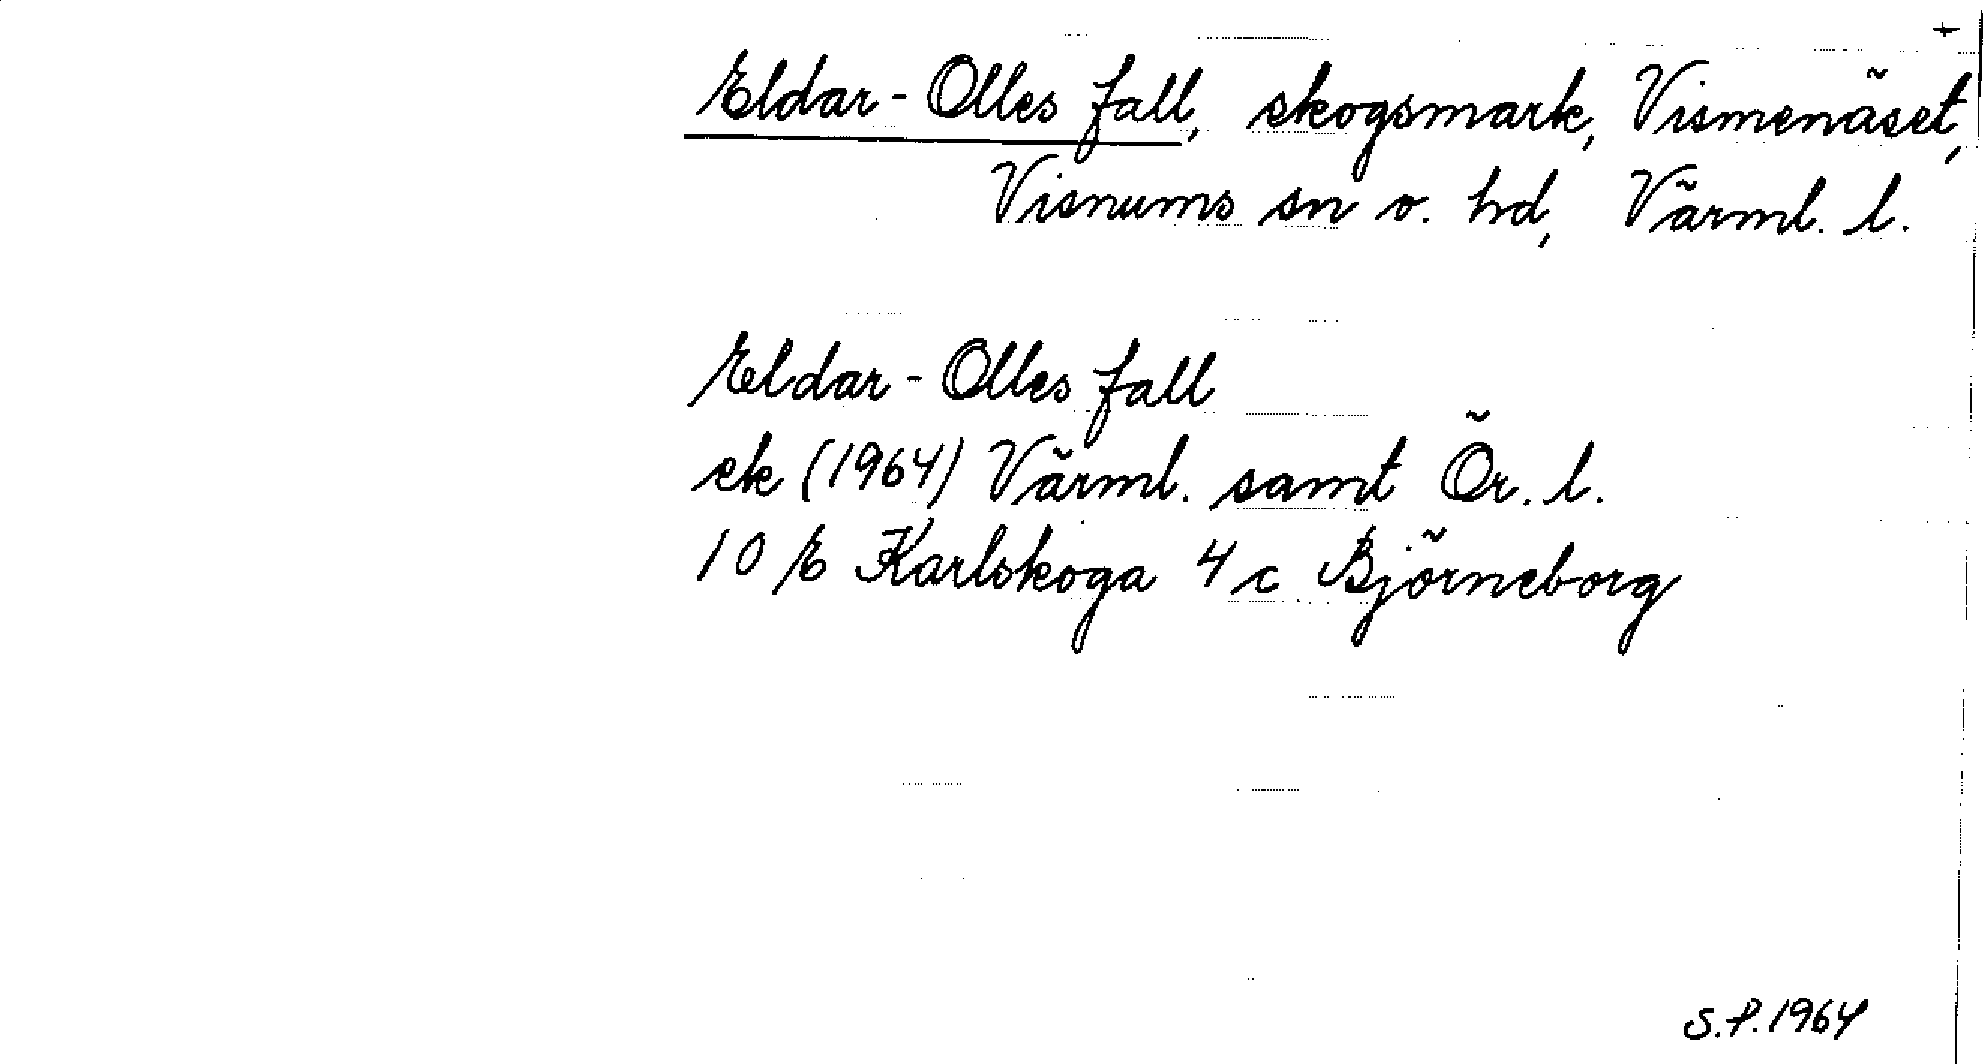 Eldar-Olles fall, skogsmark, Vismenäset,
Visnums sn o. hd, Värml. l.
Eldar-Olles fall
ek (1964) Värml. samt Ör. l.
10 E Karlskoga 4 c Björneborg
S.P. 1964